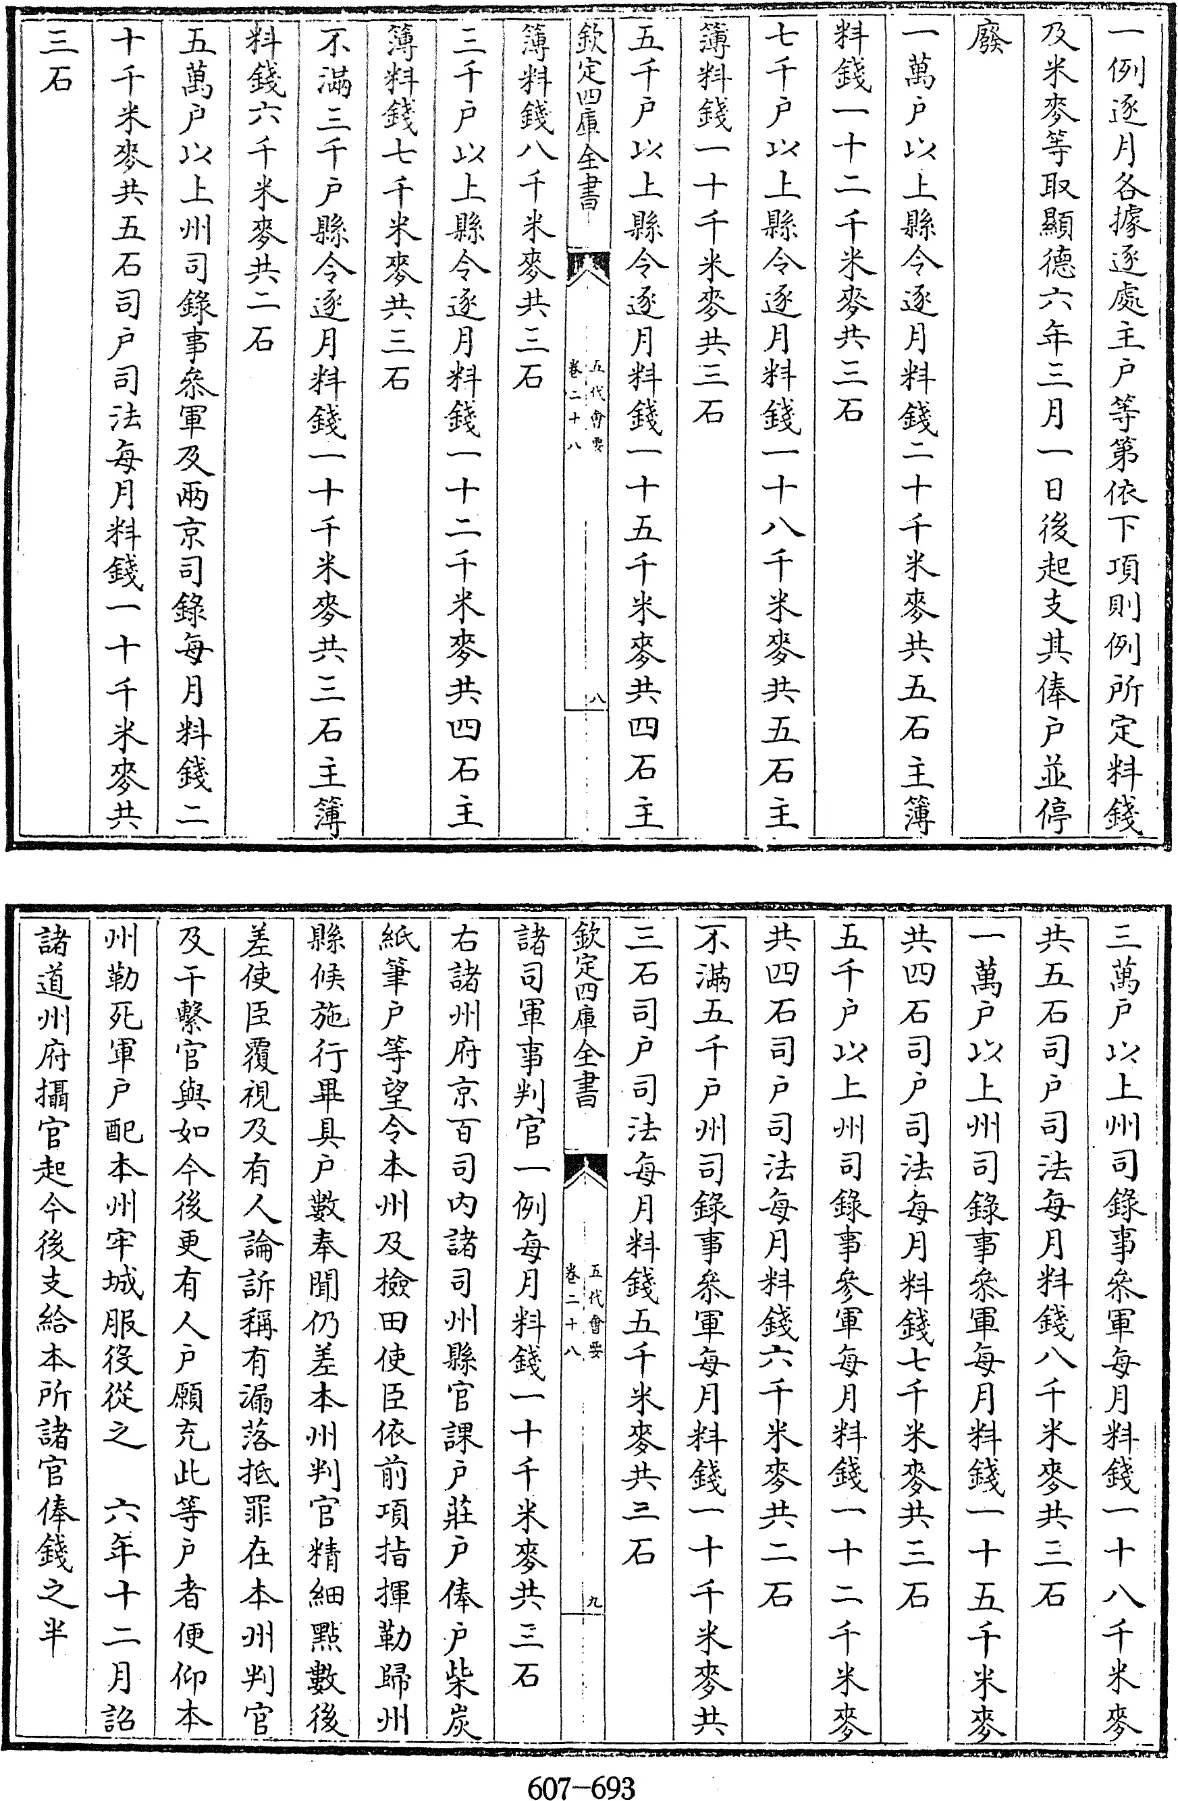 一例逐月各據逐處主户等第依下項則例所定料錢
及米麥等取顯德六年三月一日後起支其俸户並停
廢
一萬户以上縣令逐月料錢二十千米麥共五石主簿
料錢一十二千米麥共三石
七千户以上縣令逐月料錢一十八千米麥共五石主
簿料錢一十千米麥共三石
五千户以上縣令逐月料錢一十五千米麥共四石主
欽定四庫全書
五代會要
卷二十八
八
簿料錢八千米麥共三石
三千户以上縣令逐月料錢一十二千米麥共四石主
簿料錢七千米麥共三石
不滿三千户縣令逐月料錢一十千米麥共三石主簿
料錢六千米麥共二石
五萬户以上州司錄事叅軍及兩京司錄每月料錢二
十千米麥共五石司户司法每月料錢一十千米麥共
三石
三萬户以上州司錄事叅軍每月料錢一十八千米麥
共五石司户司法每月料錢八千米麥共三石
一萬户以上州司錄事叅軍每月料錢一十五千米麥
共四石司户司法每月料錢七千米麥共三石
五千户以上州司錄事參軍每月料錢一十二千米麥
共四石司户司法每月料錢六千米麥共二石
不滿五千户州司錄事叅軍每月料錢一十千米麥共
三石司户司法每月料錢五千米麥共三石
欽定四庫全書
五代會要
卷二十八
九
諸司軍事判官一例每月料錢一十千米麥共三石
右諸州府京百司内諸司州縣官課户莊户俸户柴炭
紙筆户等望令本州及檢田使臣依前項指揮勒歸州
縣候施行畢具户數奉聞仍差本州判官精細點數後
差使臣覆視及有人論訴稱有漏落抵罪在本州判官
及干繫官與如今後更有人户願充此等户者便仰本
州勒死軍户配本州牢城服役從之　六年十二月詔
諸道州府攝官起今後支給本所諸官俸錢之半
607-693